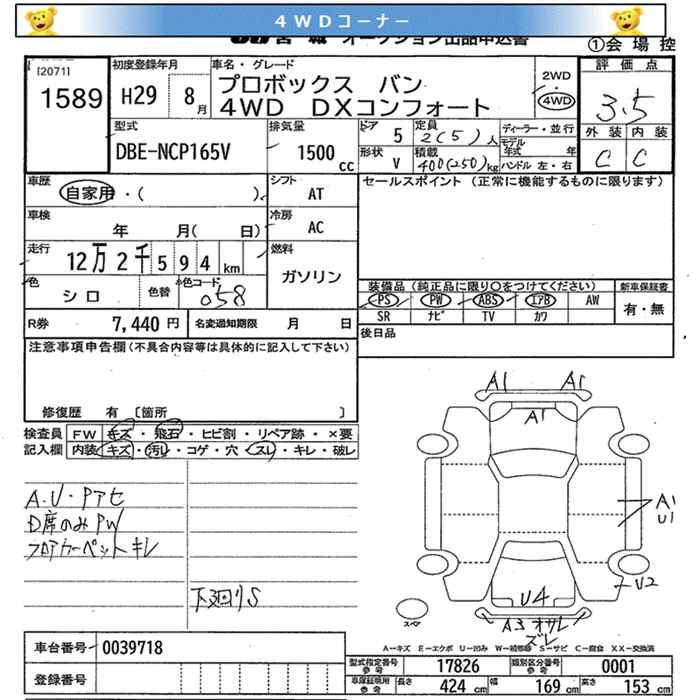 4WDコーナー
オークション出品申込書
①会場控
[2071]
1589
初度登録年月
H29 8月
車名・グレード
プロボックス バン
4WD DXコンフォート
2WD
・
4WD
評価点
3.5
外装 内装
C C
型式
DBE-NCP165V
排気量
1500 cc
ドア 5
形状 V
定員 2(5)人
積載 400(250)kg
ディーラー・並行
モデル年式 年
ハンドル 左・右
車歴
自家用・( )
シフト AT
セールスポイント (正常に機能するものに限ります)
車検
年 月( 日)
冷房 AC
走行
12万2千594km
燃料
ガソリン
色
シロ
色替
色コード 058
装備品(純正品に限り○をつけてください)
PS PW ABS エアB AW
SR ナビ TV カワ
新車保証書
有・無
R券 7,440円
名変通知期限 月 日
後日品
注意事項申告欄(不具合内容等は具体的に記入して下さい)
修復歴 有 [箇所 ]
検査員 FW キズ・飛石・ヒビ割・リペア跡・×要
記入欄 内装 キズ・汚レ・コゲ・穴・スレ・キレ・破レ
A.U・Pアセ
D席のみPW
フロアカーペットキレ
下廻りS
A1 A1
A1
A1
U1
U2
U4
A3 オサレ
ズレ
スペア
A―キズ E―エクボ U―凹み W―補修跡 S―サビ C―腐食 XX―交換済
車台番号 0039718
登録番号
型式指定番号 参考 17826
類別区分番号 参考 0001
車庫証明用 参考 長さ 424 cm 幅 169 cm 高さ 153 cm